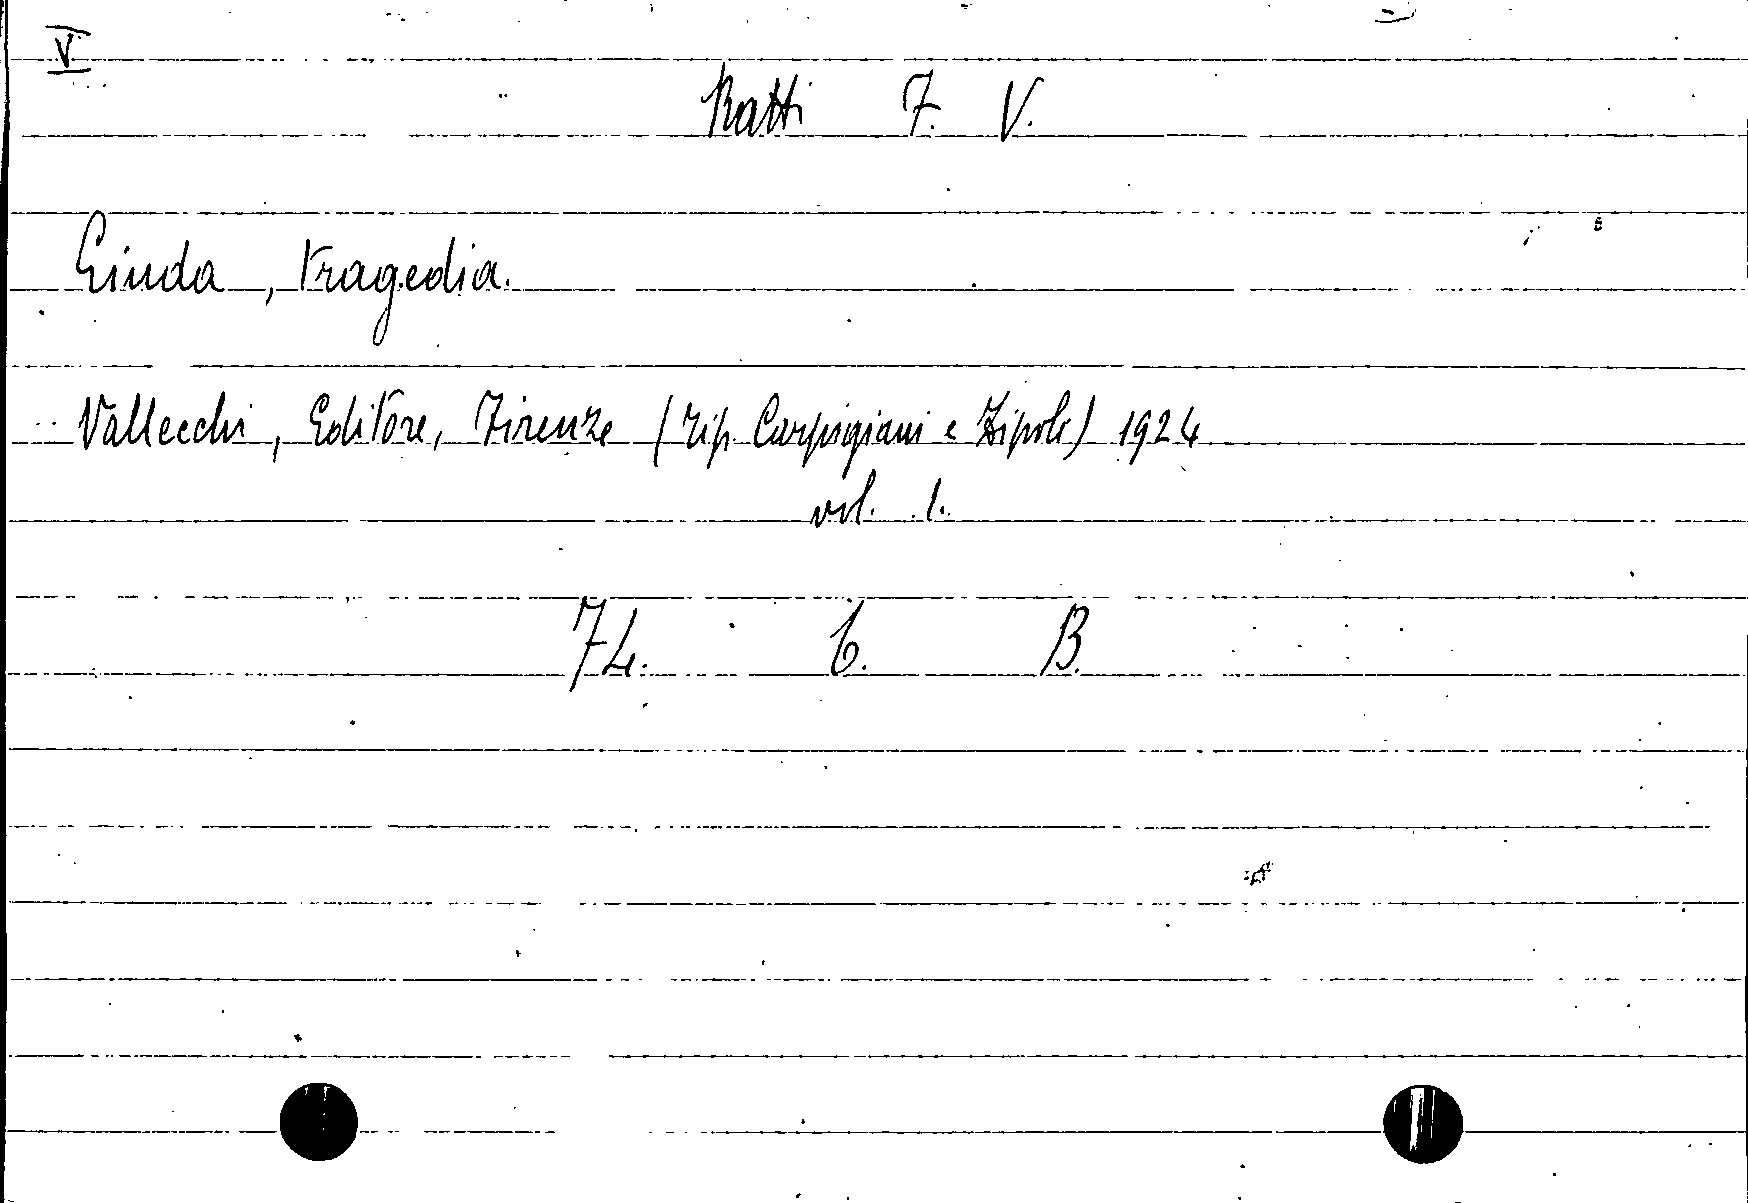 V
Ratti F. V.
Giuda, tragedia.
Vallecchi, Editore, Firenze (Tip. Carpigiani e Zipoli) 1924
vol. 1.
74. 6. B.